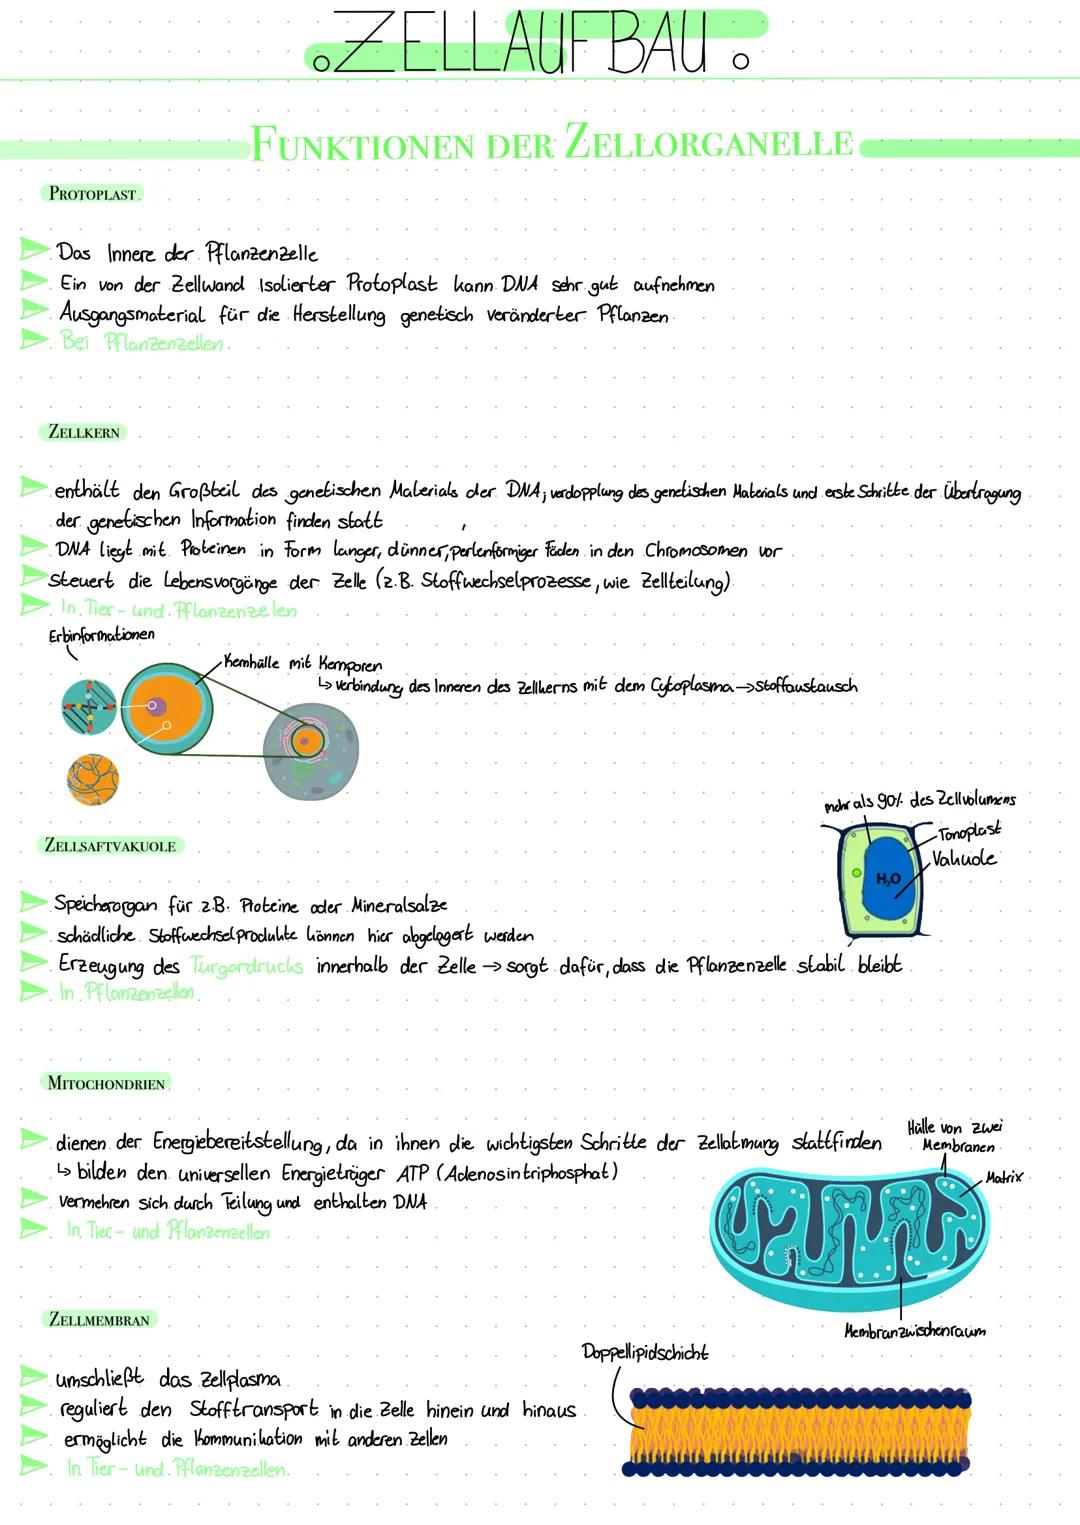 ZELLAUFBAU
FUNKTIONEN DER ZELLORGANELLE
PROTOPLAST
Das Innere der Pflanzenzelle
Ein von der Zellwand Isolierter Protoplast kann DNA sehr gut aufnehmen
Ausgangsmaterial für die Herstellung genetisch veränderter Pflanzen
Bei Pflanzenzellen
ZELLKERN
enthält den Großteil des genetischen Materials der DNA; verdopplung des genetischen Materials und erste Schritte der Übertragung
der genetischen Information finden statt
DNA liegt mit Proteinen in Form langer, dünner, perlenförmiger Fäden in den Chromosomen vor
steuert die Lebensvorgänge der Zelle (z.B. Stoffwechselprozesse, wie Zellteilung)
In Tier- und Pflanzenzelen
Erbinformationen
Kernhülle mit Kernporen
↳ verbindung des Inneren des Zellkerns mit dem Cytoplasma → Stoffaustausch
mehr als 90% des Zellvolumens
Tonoplast
Vakuole
H₂O
ZELLSAFTVAKUOLE
Speicherorgan für z.B. Proteine oder Mineralsalze
schädliche Stoffwechselprodukte können hier abgelagert werden
Erzeugung des Turgordrucks innerhalb der Zelle → sorgt dafür, dass die Pflanzenzelle stabil bleibt
In Pflanzenzellen
MITOCHONDRIEN
dienen der Energiebereitstellung, da in ihnen die wichtigsten Schritte der Zellatmung stattfinden
↳ bilden den universellen Energieträger ATP (Adenosintriphosphat)
vermehren sich durch Teilung und enthalten DNA
In Tier- und Pflanzenzellen
Hülle von zwei
Membranen
Matrix
Membranzwischenraum
ZELLMEMBRAN
umschließt das Zellplasma
reguliert den Stofftransport in die Zelle hinein und hinaus
ermöglicht die Kommunikation mit anderen Zellen
In Tier- und Pflanzenzellen.
Doppellipidschicht